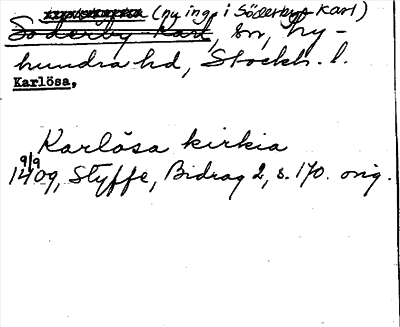 (ny ing. i Söderby-Karl)
Söderby Karl, sn, Ly-
hundra hd, Stockh. l.
Karlösa,
Karlösa kirkia
9/9
1409, Styffe, Bidrag 2, s. 170. orig.